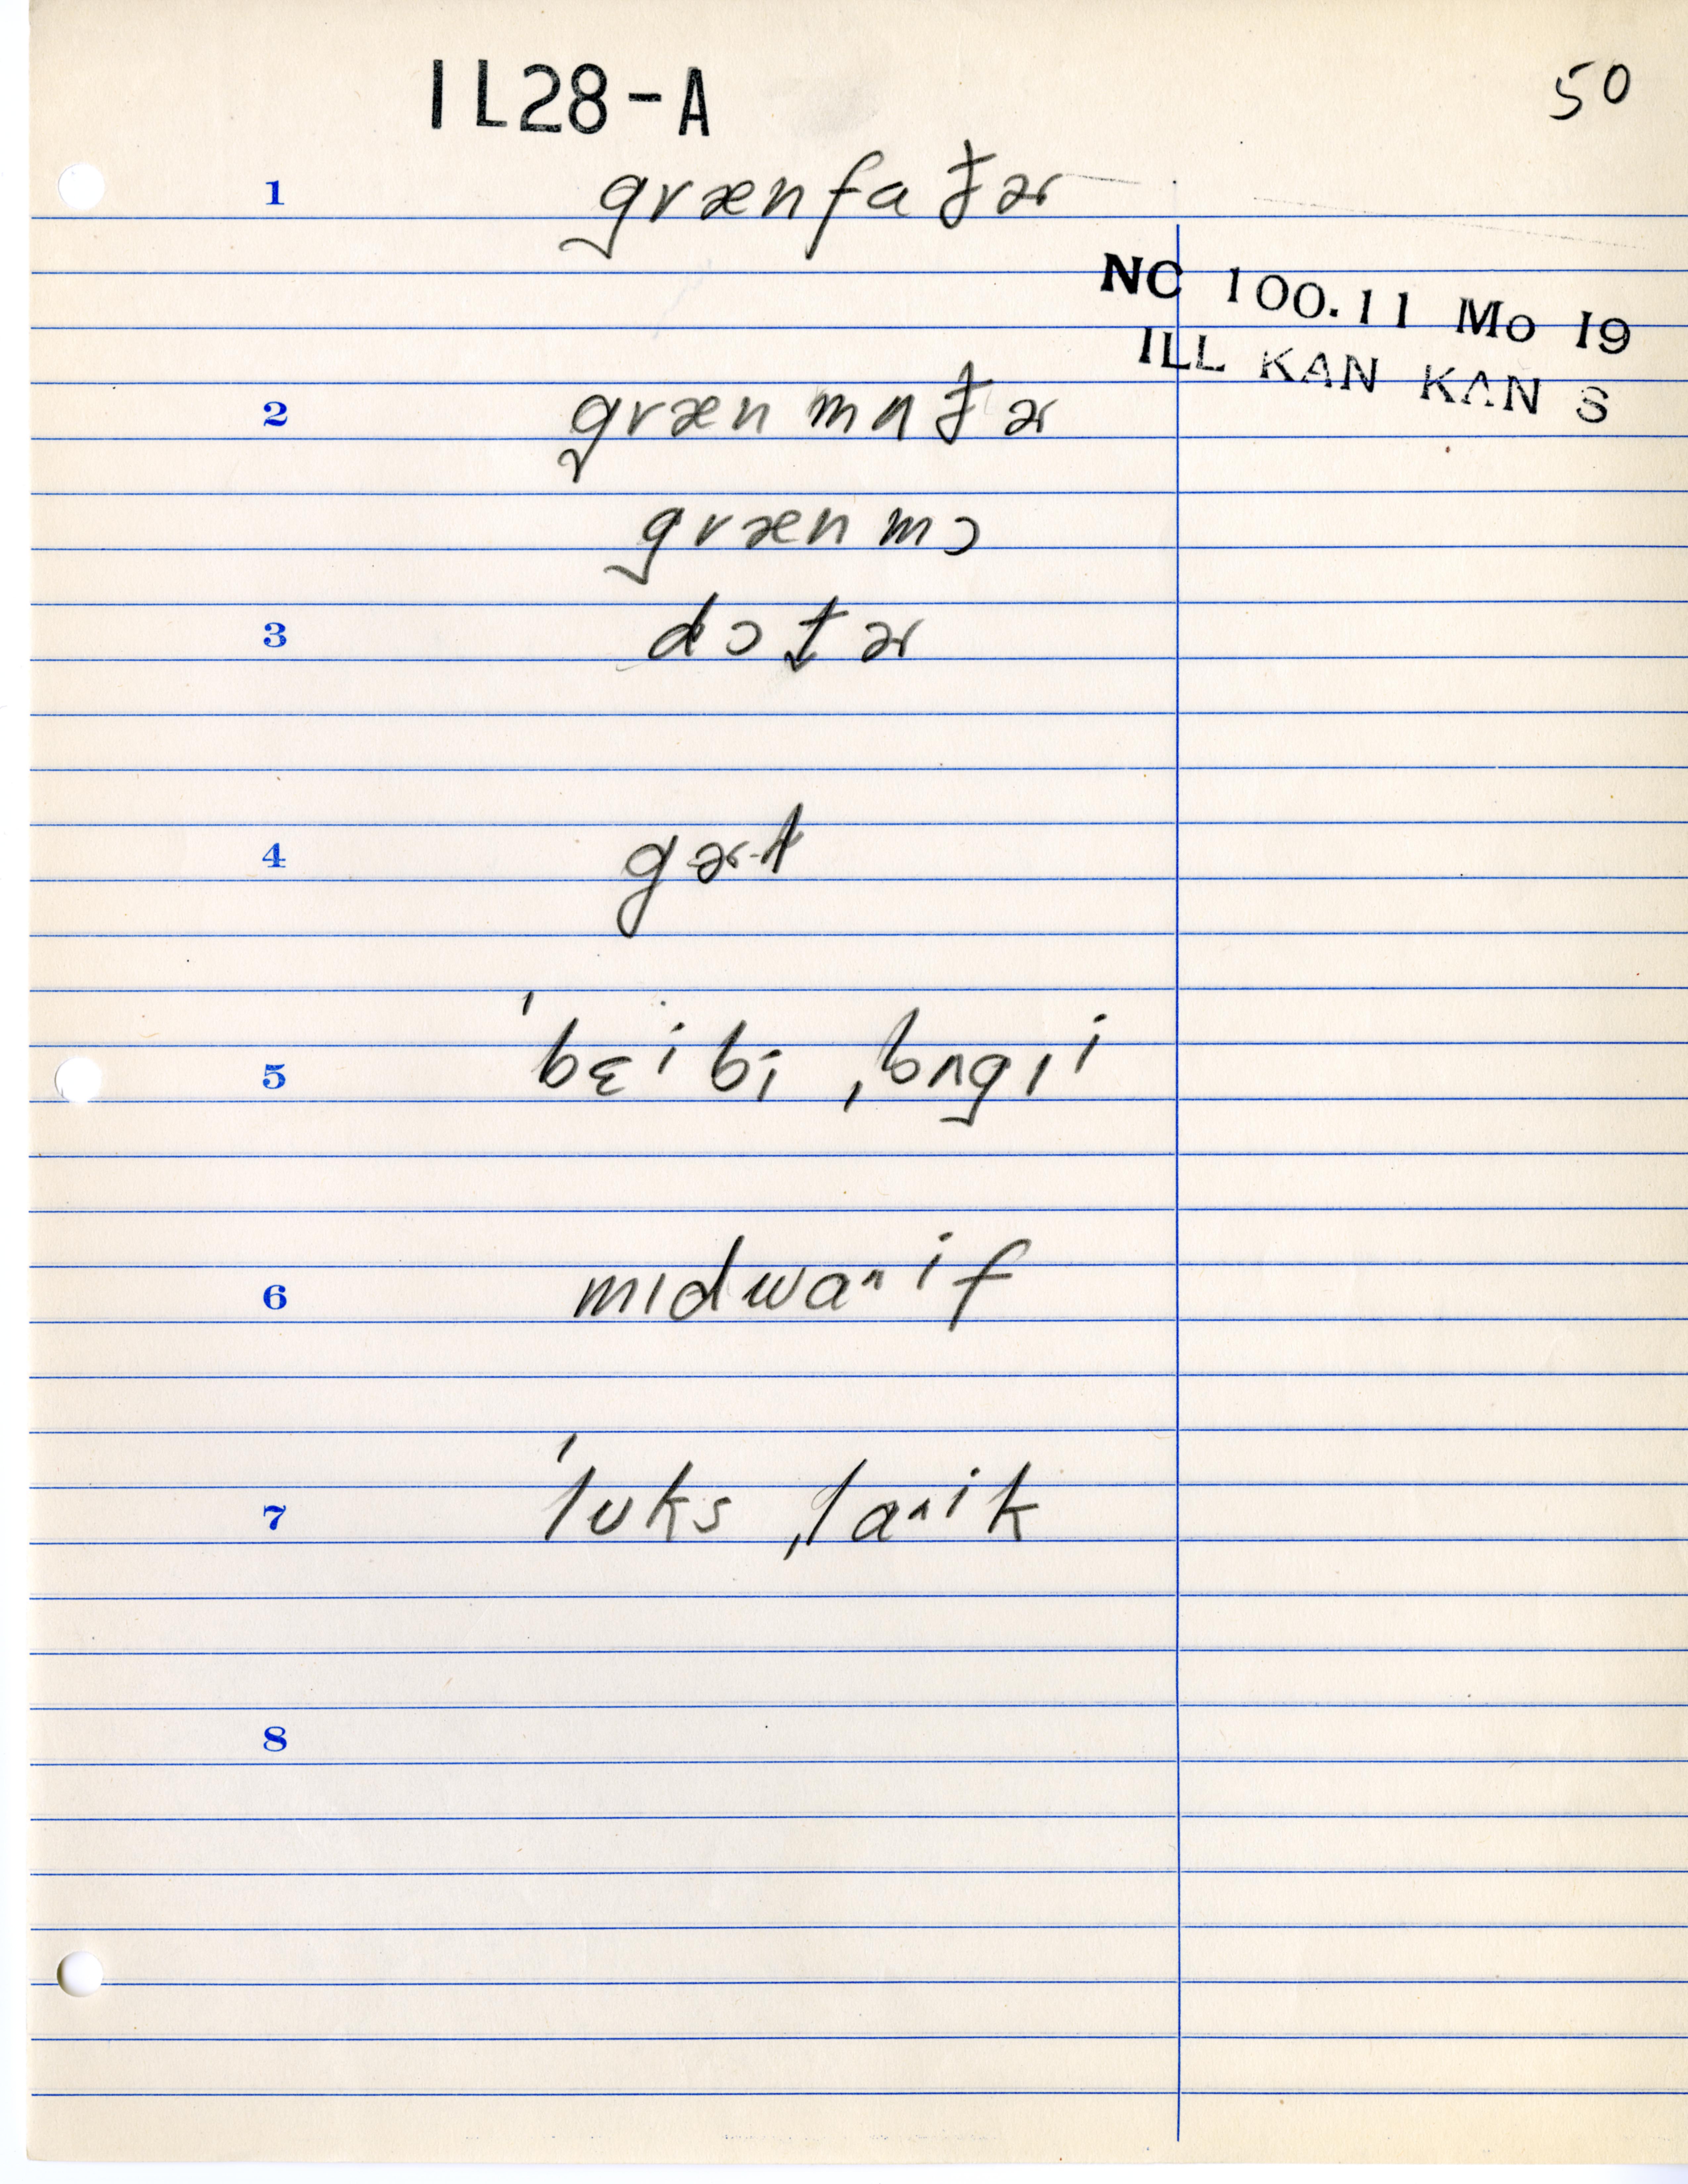 IL28-A
50
1 grænfaðɚ
NC 100.11 Mo 19
ILL KAN KAN S
2 grænmʌðɚ
grænmɔ
3 dɔt̬ɚ
4 gɚɫ
5 ˈbɛⁱbi ˌbʌgɪⁱ
6 mɪdwaᴧⁱf
7 ˈlʊks ˌlaᴧⁱk
8